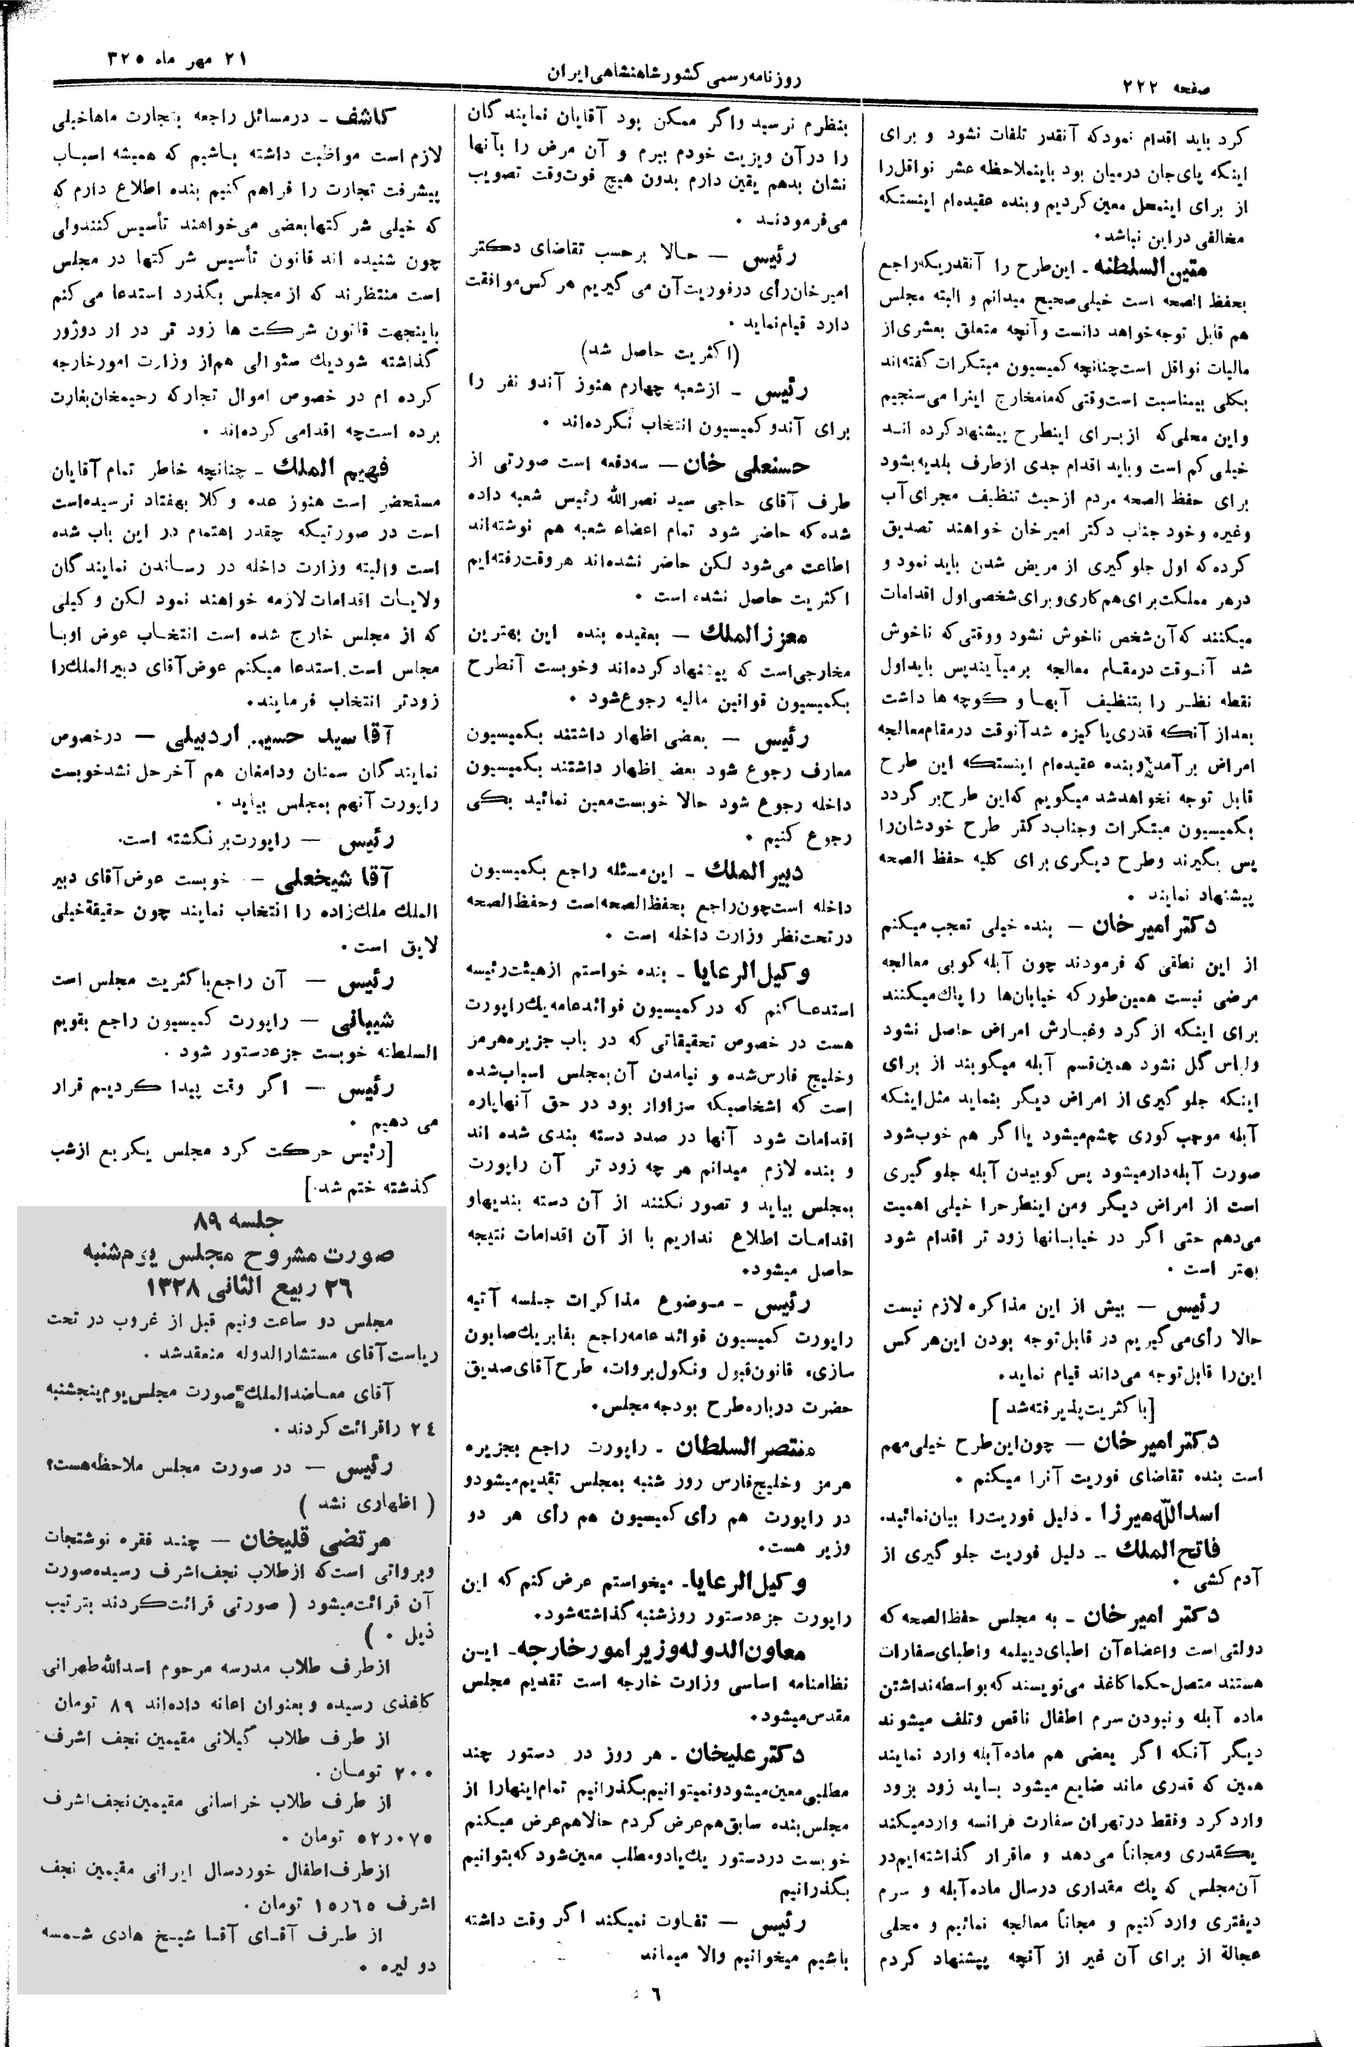 صفحه ۲۲۲
روزنامه رسمی کشور شاهنشاهی ایران
۲۱ مهر ماه ۳۲۵
کرد باید اقدام نمود که آنقدر تلفات نشود و برای
اینکه پای جان درمیان بود باینملاحظه عشر نواقل را
از برای اینمحل معین کردیم و بنده عقیده‌ام اینستکه
مخالفی در این نباشد.
متین السلطنه - این طرح را آنقدریکه راجع
بحفظ الصحه است خیلی صحیح میدانم و البته مجلس
هم قابل توجه خواهد دانست و آنچه متعلق بعشری از
مالیات نواقل است چنانچه کمیسیون مبتکرات گفته‌اند
بکلی بیمناسبت است وقتی که ما مخارج اینرا می سنجیم
و این محلی که از برای اینطرح پیشنهاد کرده اند
خیلی کم است و باید اقدام جدی از طرف بلدیه بشود
برای حفظ الصحه مردم از حیث تنظیف مجرای آب
وغیره و خود جناب دکتر امیرخان خواهند تصدیق
کرد که اول جلو گیری از مریض شدن باید نمود و
در هر مملکت برای هم کاری و برای شخصی اول اقدامات
میکنند که آن شخص ناخوش نشود و وقتی که ناخوش
شد آنوقت در مقام معالجه برمیآیند پس باید اول
نقطه نظر را بتنظیف آبها و کوچه ها داشت
بعد از آنکه قدری پاکیزه شد آنوقت در مقام معالجه
امراض بر آمد و بنده عقیده‌ام اینستکه این طرح
قابل توجه نخواهد شد میگویم که این طرح بر گردد
بکمیسیون مبتکرات و جناب دکتر طرح خودشان را
پس بگیرند و طرح دیگری برای کلیه حفظ الصحه
پیشنهاد نمایند .
دکتر امیر خان — بنده خیلی تعجب میکنم
از این نطقی که فرمودند چون آبله کوبی معالجه
مرضی نیست همین طور که خیابان‌ها را پاك میکنند
برای اینکه از گرد و غبارش امراض حاصل نشود
ولباس گل نشود همین قسم آبله میکوبند از برای
اینکه جلو گیری از امراض دیگر بنماید مثل اینکه
آبله موجب کوری چشم میشود یا اگر هم خوب شود
صورت آبله‌دار میشود پس کوبیدن آبله جلو گیری
است از امراض دیگر و من اینطرح را خیلی اهمیت
می‌دهم حتی اگر در خیابانها زود تر اقدام شود
بهتر است .
رئیس — بیش از این مذاکره لازم نیست
حالا رأی می گیریم در قابل توجه بودن این هر کس
این را قابل توجه می‌داند قیام نماید.
[با کثریت پذیرفته شد ]
دکتر امیر خان — چون این طرح خیلی مهم
است بنده تقاضای فوریت آنرا میکنم .
اسدالله میرزا - دلیل فوریت را بیان نمائید.
فاتح الملك - دلیل فوریت جلو گیری از
آدم کشی .
دکتر امیر خان - به مجلس حفظ الصحه که
دولتی است و اعضاء آن اطبای دیپلمه و اطبای سفارات
هستند متصل حکما کاغذ می‌نویسند که بواسطه نداشتن
ماده آبله و نبودن سرم اطفال ناقص و تلف میشوند
دیگر آنکه اگر بعضی هم ماده آبله وارد نمایند
همین که قدری ماند ضایع میشود باید زود بزود
وارد کرد و فقط در تهران سفارت فرانسه وارد میکند
یکقدری و مجاناً می‌دهد و ما قرار گذاشته‌ایم در
آن مجلس که یك مقداری در سال ماده آبله و سرم
دیفتری وارد کنیم و مجاناً معالجه نمائیم و محلی
عجالة از برای آن غیر از آنچه پیشنهاد کردم
بنظرم نرسید و اگر ممکن بود آقایان نمایندگان
را در آن ویزیت خودم ببرم و آن مرض را بآنها
نشان بدهم یقین دارم بدون هیچ فوت وقت تصویب
می‌فرمودند .
رئیس — حالا بر حسب تقاضای دکتر
امیرخان رأی در فوریت آن می گیریم هر کس موافقت
دارد قیام نماید .
(اکثریت حاصل شد)
رئیس - از شعبه چهارم هنوز آندو نفر را
برای آندو کمیسیون انتخاب نکرده‌اند .
حسنعلی خان — سه دفعه است صورتی از
طرف آقای حاجی سید نصرالله رئیس شعبه داده
شده که حاضر شود تمام اعضاء شعبه هم نوشته‌اند
اطاعت می‌شود لکن حاضر نشده‌اند هر وقت رفته‌ایم
اکثریت حاصل نشده است .
معزز الملك — بعقیده بنده این بهترین
مخارجی است که پیشنهاد کرده‌اند و خوبست آنطرح
بکمیسیون قوانین مالیه رجوع شود .
رئیس — بعضی اظهار داشتند بکمیسیون
معارف رجوع شود بعض اظهار داشتند بکمیسیون
داخله رجوع شود حالا خوبست معین نمائید بکی
رجوع کنیم .
دبیر الملك - این مسئله راجع بکمیسیون
داخله است چون راجع بحفظ الصحه است و حفظ الصحه
در تحت نظر وزارت داخله است .
وکیل الرعایا - بنده خواستم از هیئت رئیسه
استدعا کنم که در کمیسیون فوائد عامه یك راپورت
هست در خصوص تحقیقاتی که در باب جزیره هرمز
و خلیج فارس شده و نیامدن آن بمجلس اسباب شده
است که اشخاصیکه سزاوار بود در حق آنها پاره
اقدامات شود آنها در صدد دسته بندی شده اند
و بنده لازم میدانم هر چه زود تر آن راپورت
بمجلس بیاید و تصور نکنند از آن دسته بندیها و
اقدامات اطلاع نداریم با از آن اقدامات نتیجه
حاصل میشود.
رئیس - موضوع مذاکرات جلسه آتیه
راپورت کمیسیون فوائد عامه راجع بفابریك صابون
سازی، قانون قبول و نکول بروات، طرح آقای صدیق
حضرت درباره طرح بودجه مجلس.
منتصر السلطان - راپورت راجع بجزیره
هرمز و خلیج فارس روز شنبه بمجلس تقدیم میشود و
در راپورت هم رأی کمیسیون هم رأی هر دو
وزیر هست.
وکیل الرعایا- میخواستم عرض کنم که این
راپورت جزء دستور روز شنبه گذاشته شود.
معاون الدوله وزیر امور خارجه- این
نظامنامه اساسی وزارت خارجه است تقدیم مجلس
مقدس میشود.
دکتر علیخان - هر روز در دستور چند
مطلبی معین میشود و نمیتوانیم بگذرانیم تمام اینها را از
مجلس بنده سابق هم عرض کردم حالا هم عرض میکنم
خوبست در دستور یك یا دو مطلب معین شود که بتوانیم
بگذرانیم
رئیس — تفاوت نمیکند اگر وقت داشته
باشیم میخوانیم والا میماند
کاشف - در مسائل راجعه بتجارت ماها خیلی
لازم است مواظبت داشته باشیم که همیشه اسباب
پیشرفت تجارت را فراهم کنیم بنده اطلاع دارم که
که خیلی شر کتها بعضی می‌خواهند تأسیس کنند ولی
چون شنیده اند قانون تأسیس شر کتها در مجلس
است منتظرند که از مجلس بگذرد استدعا می کنم
باینجهت قانون شرکت ها زود تر در اردوژور
گذاشته شود یك سئوالی هم از وزارت امور خارجه
کرده ام در خصوص اموال تجار که رحیمخان بغارت
برده است چه اقدامی کرده‌اند .
فهیم الملك - چنانچه خاطر تمام آقایان
مستحضر است هنوز عده و کلا بهفتاد نرسیده است
است در صورتیکه چقدر اهتمام در این باب شده
است والبته وزارت داخله در رساندن نمایندگان
ولایات اقدامات لازمه خواهند نمود لکن و کیلی
که از مجلس خارج شده است انتخاب عوض او با
مجلس است استدعا میکنم عوض آقای دبیر الملك را
زودتر انتخاب فرمایند.
آقا سید حسین اردبیلی — در خصوص
نمایندگان سمنان و دامغان هم آخر حل نشد خوبست
راپورت آنهم بمجلس بیاید .
رئیس — راپورت بر نگشته است.
آقا شیخعلی — خوبست عوض آقای دبیر
الملك ملك زاده را انتخاب نمایند چون حقیقة خیلی
لایق است .
رئیس — آن راجع با کثریت مجلس است
شیبانی — راپورت کمیسیون راجع بقویم
السلطنه خوبست جزء دستور شود .
رئیس — اگر وقت پیدا کردیم قرار
می دهیم .
[رئیس حرکت کرد مجلس یکربع از شب
گذشته ختم شد.]
جلسه ۸۹
صورت مشروح مجلس یوم شنبه
۲۶ ربیع الثانی ۱۳۲۸
مجلس دو ساعت ونیم قبل از غروب در تحت
ریاست آقای مستشار الدوله منعقد شد .
آقای معاضد الملك صورت مجلس یوم پنجشنبه
۲۴ را قرائت کردند .
رئیس — در صورت مجلس ملاحظه هست؟
( اظهاری نشد )
مرتضی قلیخان — چند فقره نوشتجات
وبرواتی است که از طلاب نجف اشرف رسیده صورت
آن قرائت میشود ( صورتی قرائت کردند بترتیب
ذیل . )
از طرف طلاب مدرسه مرحوم اسدالله طهرانی
کاغذی رسیده و بعنوان اعانه داده‌اند ۸۹ تومان
از طرف طلاب گیلانی مقیمین نجف اشرف
۲۰۰ تومان .
از طرف طلاب خراسانی مقیمین نجف اشرف
۵۲ر۰۷۵ تومان .
از طرف اطفال خوردسال ایرانی مقیمین نجف
اشرف ۱۵ر۶۵ تومان .
از طرف آقای آقا شیخ هادی شمسه
دو لیره .
۶